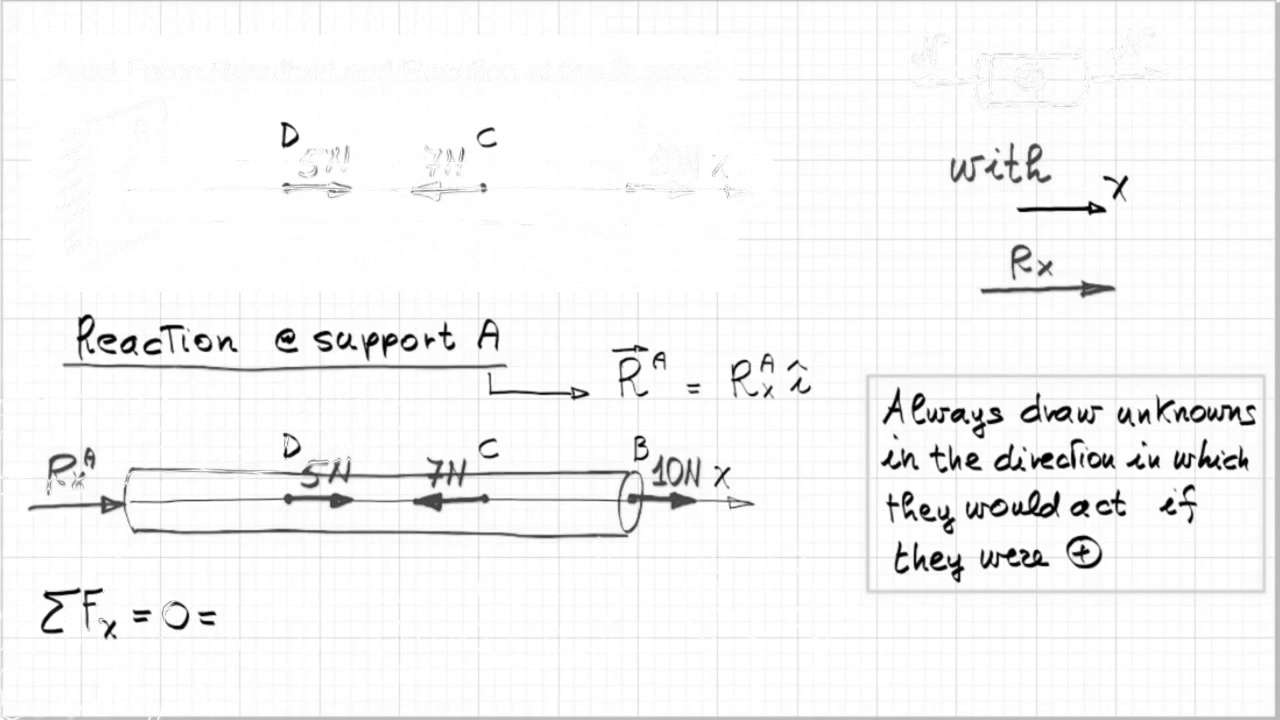 Axial Force Resultant and Reaction at the Support
D C
5N 7N 10N x
with
x
Rx
Reaction @ support A
R^A = R_x^A î
D C B
R_x^A 5N 7N 10N x
Always draw unknowns
in the direction in which
they would act if
they were ⊕
ΣF_x = 0 =